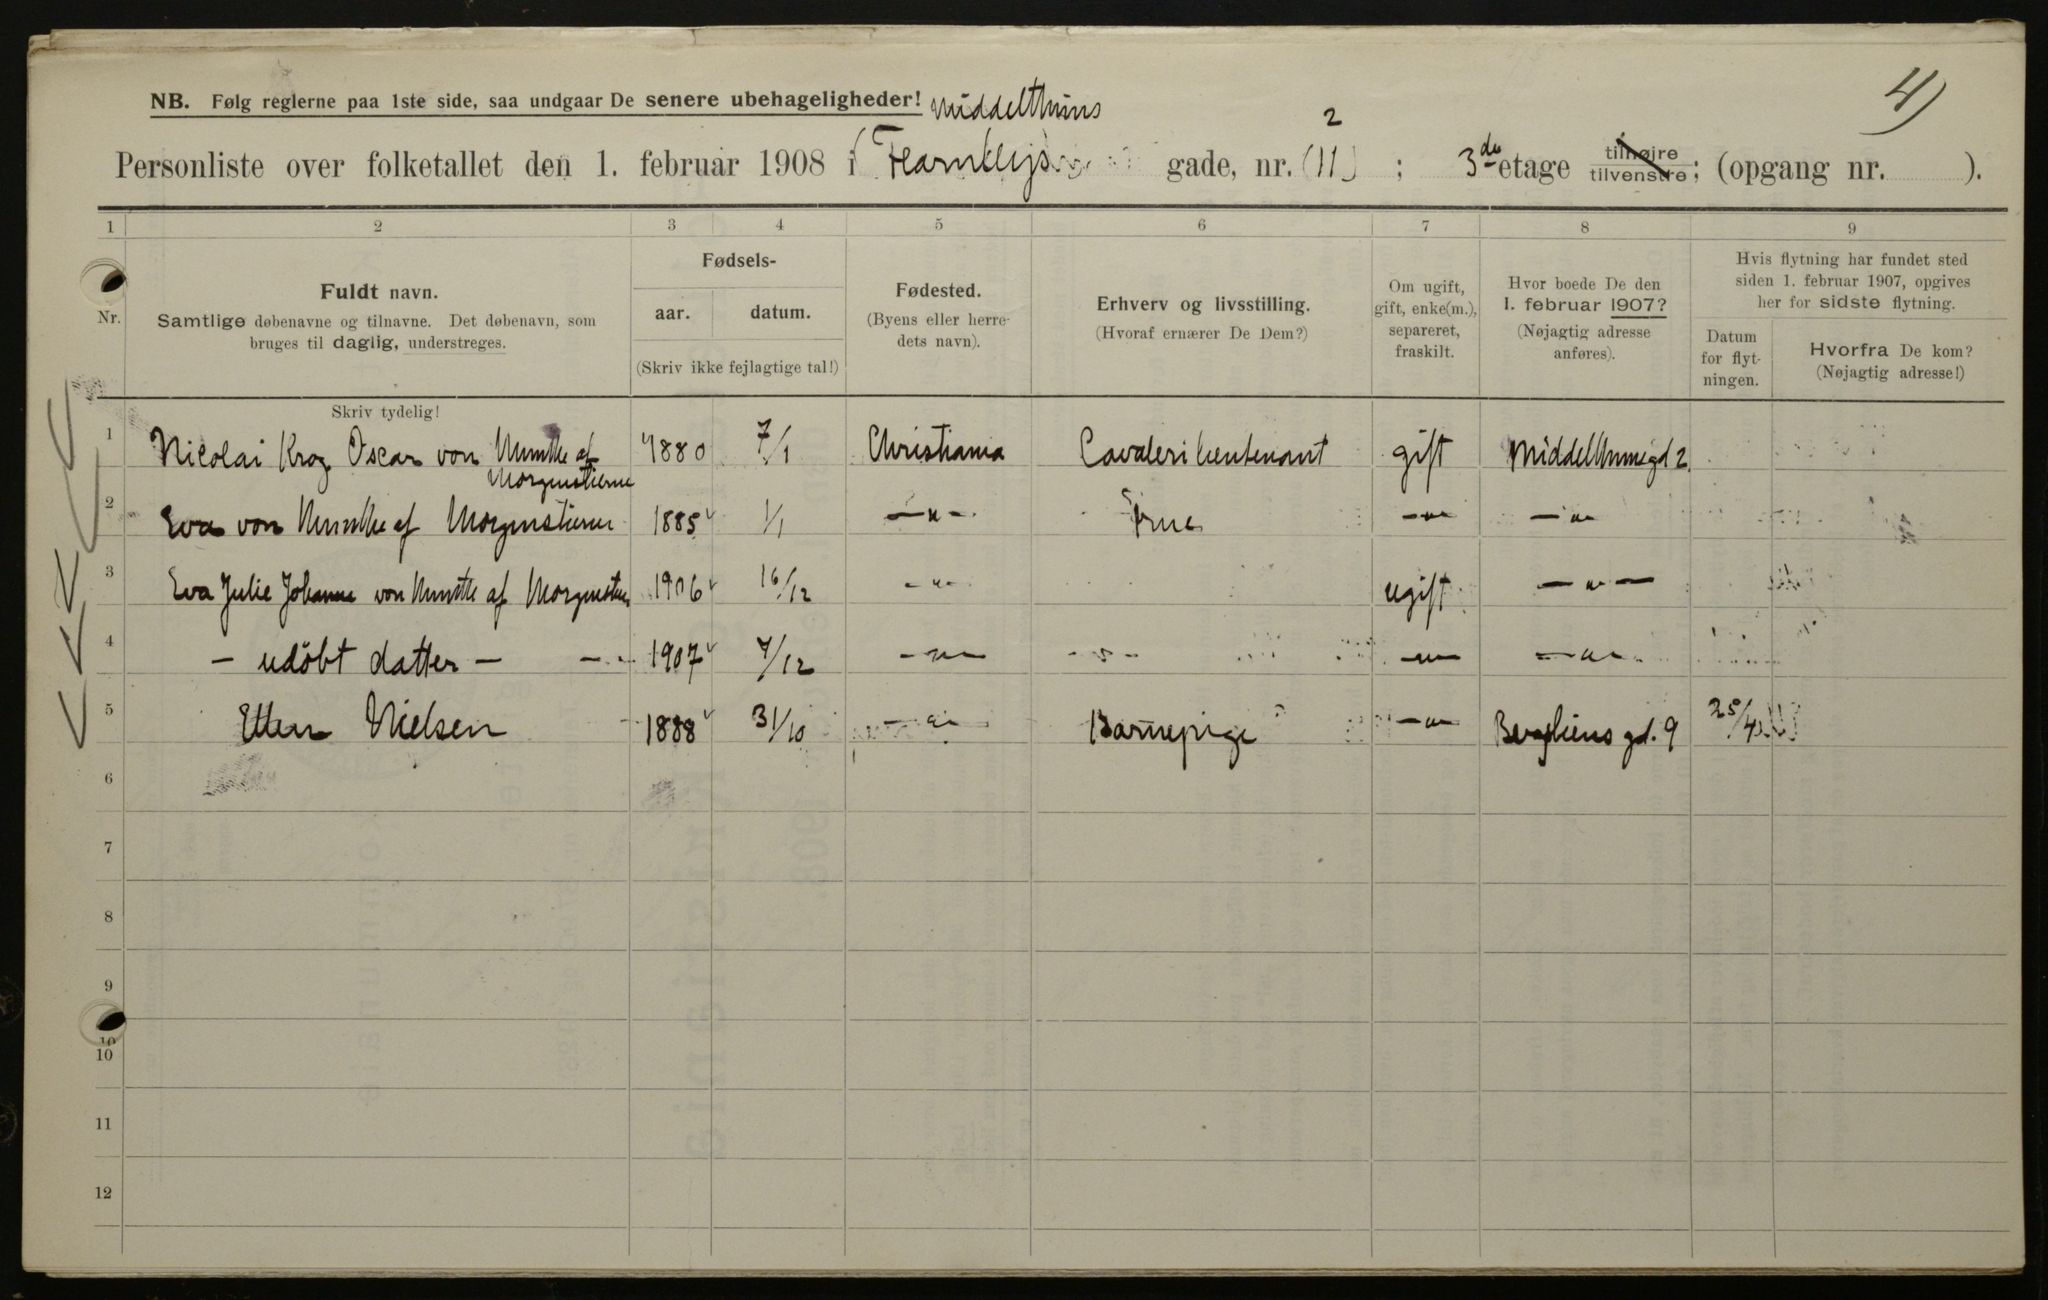 4)
NB. Følg reglerne paa 1ste side, saa undgaar De senere ubehageligheder! Middelthuns
2
Personliste over folketallet den 1. februar 1908 i (                gade, nr. (11) ; 3de etage tilhøjre tilvenstre; (opgang nr.        ).
1 2 3 4 5 6 7 8 9
Nr.
Fuldt navn.
Samtlige døbenavne og tilnavne. Det døbenavn, som
bruges til daglig, understreges.
Fødsels-
aar. datum.
(Skriv ikke fejlagtige tal!)
Fødested.
(Byens eller herre-
dets navn).
Erhverv og livsstilling.
(Hvoraf ernærer De Dem?)
Om ugift,
gift, enke(m.),
separeret,
fraskilt.
Hvor boede De den
1. februar 1907?
(Nøjagtig adresse
anføres).
Hvis flytning har fundet sted
siden 1. februar 1907, opgives
her for sidste flytning.
Datum
for flyt-
ningen.
Hvorfra De kom?
(Nøjagtig adresse!)
Skriv tydelig!
1 Nicolai Krog Oscar von Munthe af 1880 7/1 Christiania Cavalerilieutenant gift Middelthunsgd 2.
Morgenstierne
2 Eva von Munthe af Morgenstierne 1885 1/1 —"— Frue —"— —"—
3 Eva Julie Johanne von Munthe af Morgenstierne 1906 16/12 —"— ugift —"—
4 — udöbt datter — 1907 4/12 —"— —"— —"— —"—
5 Ellen Nielsen 1888 31/10 —"— Barnepige —"— Bergliens gd. 9 25/4
6
7
8
9
10
10
11
12